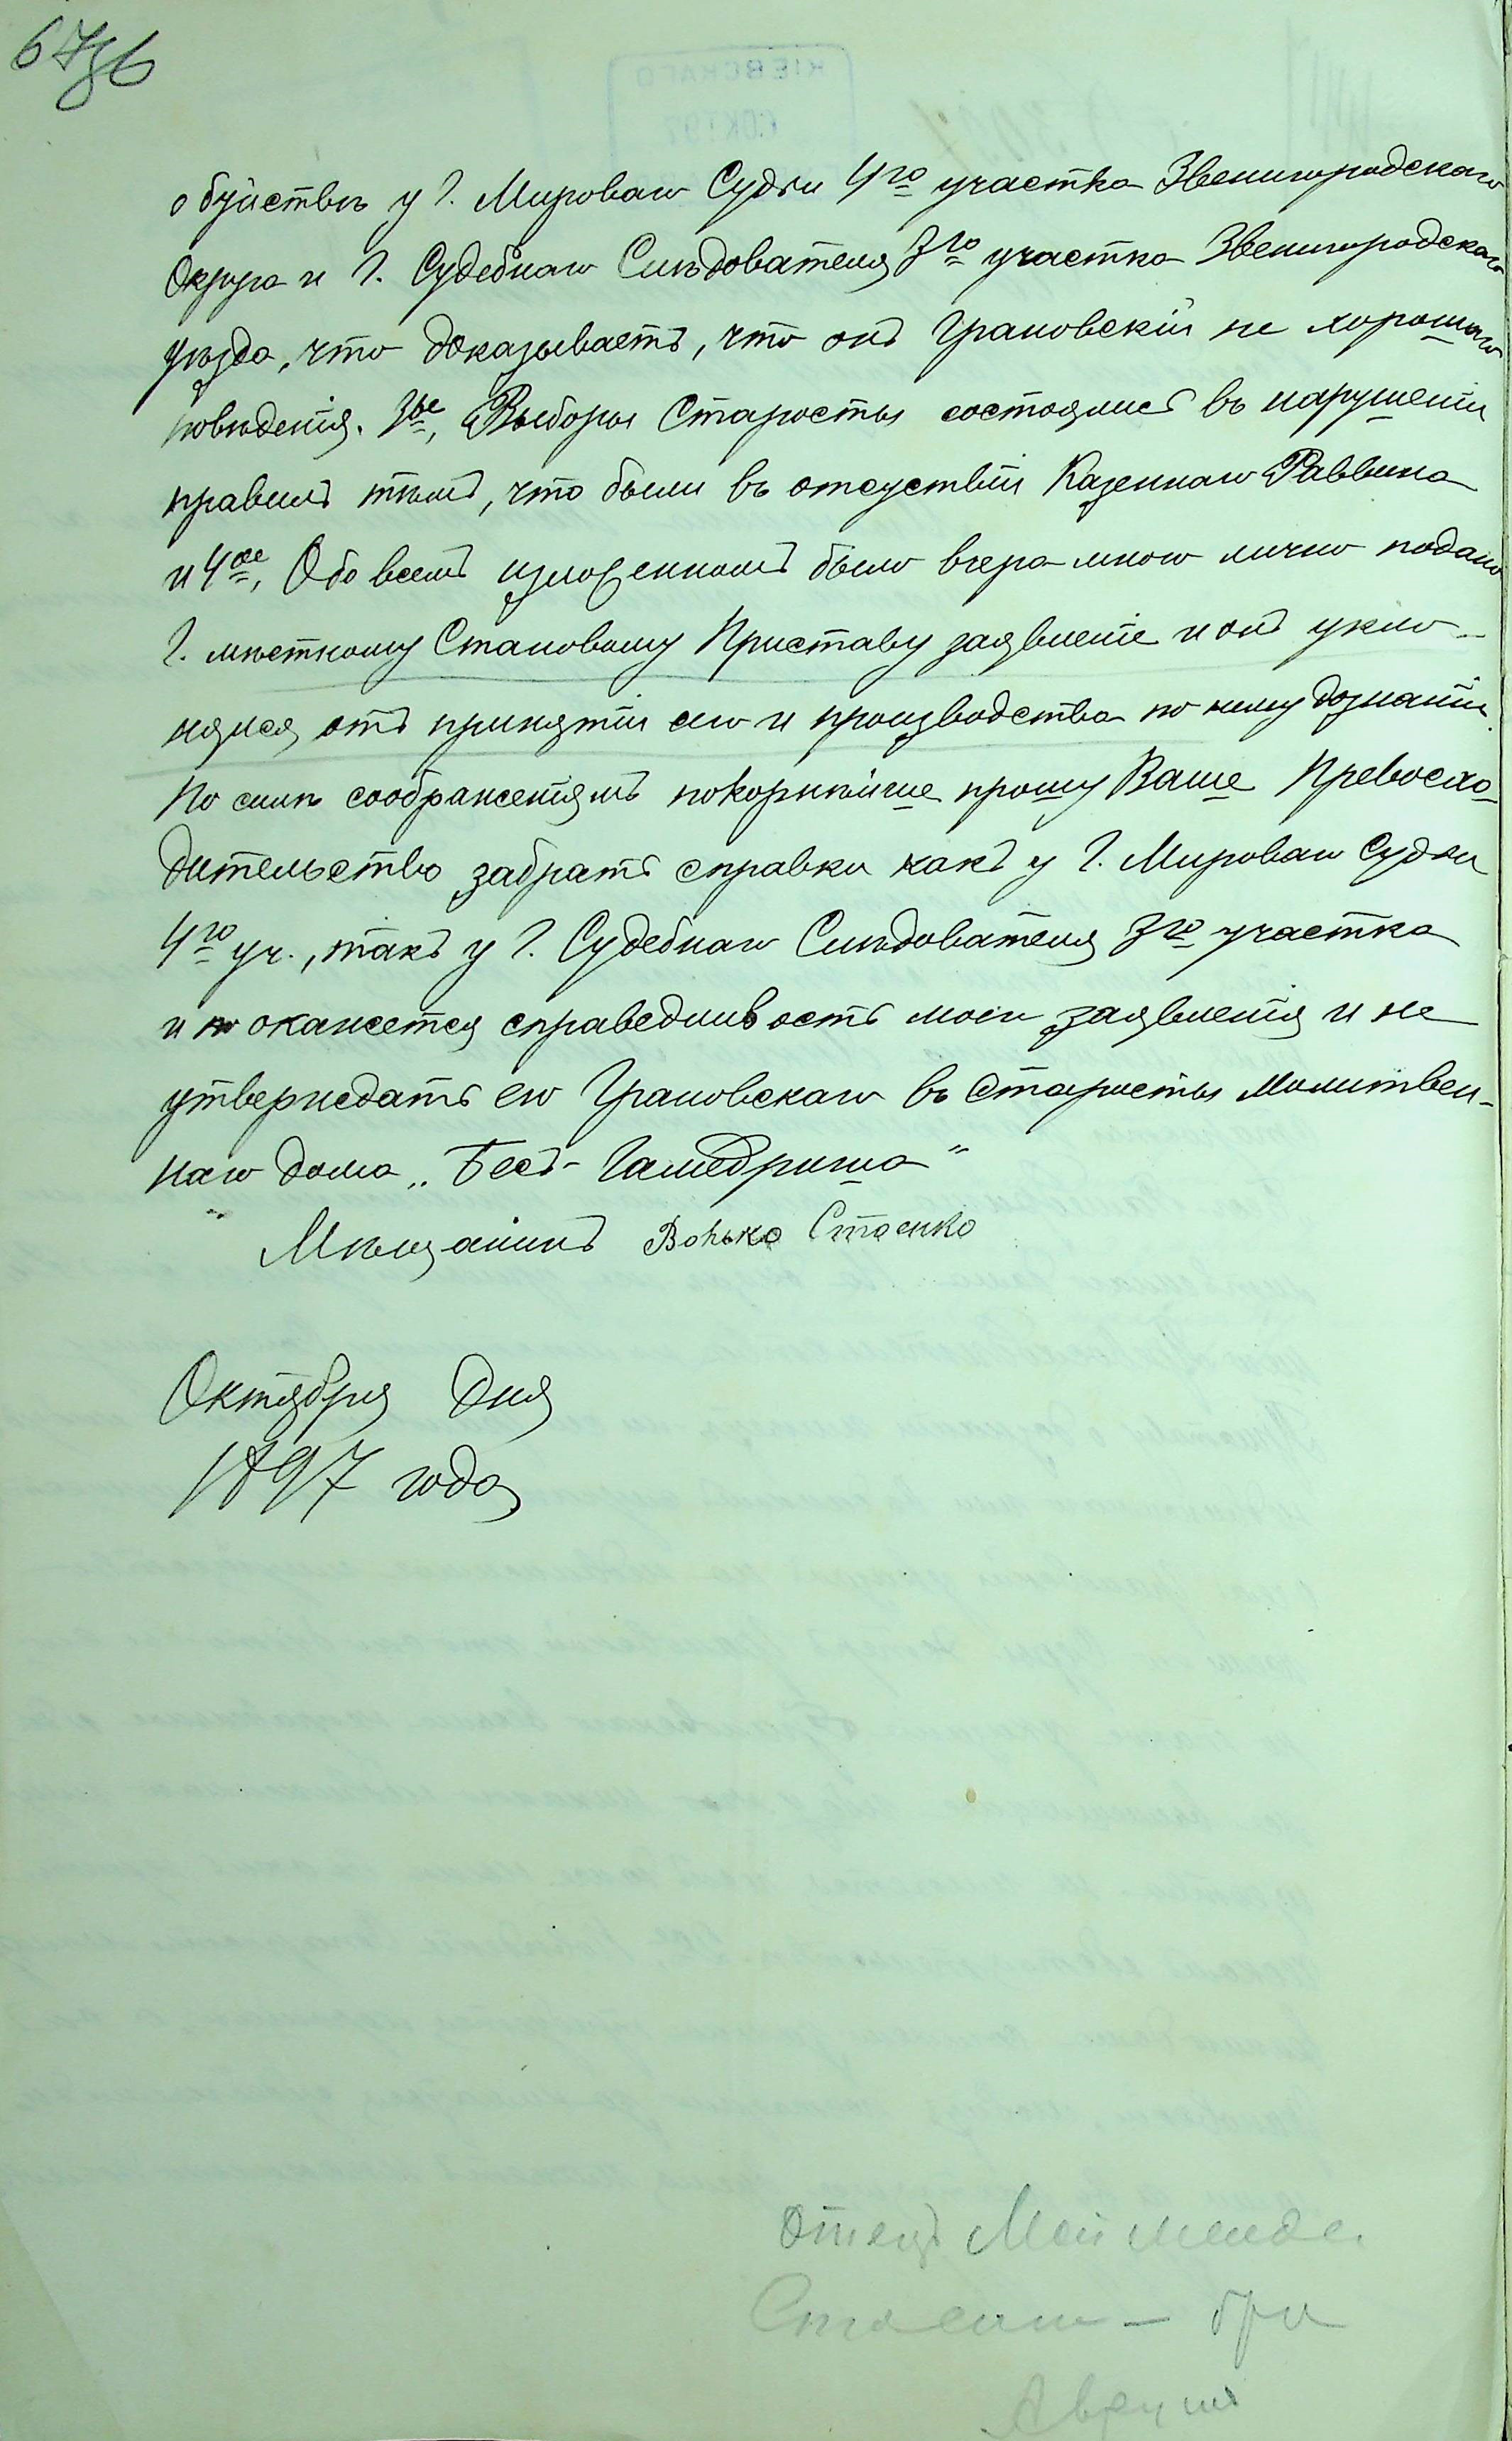 67об
обуйствѣ у Г. Мироваго Судьи 4го участка Звенигородскаго
Округа и Г. Судебнаго Слѣдователя 3го участка Звенигородскаго
уѣзда, что доказываетъ, что онъ Грановскій не хорошаго
поведенія. 3ье, Выборы Старосты состоялись въ нарушеніи
правилъ тѣмъ, что были въ отсуствіи Казеннаго Раввина
и 4ое, Обо всемъ изложенномъ было вчера мною лично подано
Г. мѣстному Становому Приставу заявленіе и онъ укло-
нялся отъ принятіи его и производства по нему дознаніи.
По симъ соображеніямъ покорнѣйше прошу Ваше Превосхо-
дительство забрать справки какъ у Г. Мироваго Судьи
4го уч., такъ у Г. Судебнаго Слѣдователя 3го участка
и окажется справедливость мои заявленія и не
утверждать его Грановскаго въ Старосты Молитвен-
наго дома „Бесъ-Гамедриша"
Мѣщанинъ Волько Стасенко
Октября Дня
1897 года
Отецъ Мой